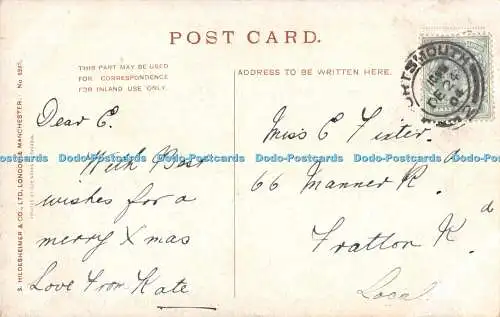 POST CARD.
THIS PART MAY BE USED
FOR CORRESPONDENCE
FOR INLAND USE ONLY.
ADDRESS TO BE WRITTEN HERE.
S. HILDESHEIMER & CO., LTD. LONDON & MANCHESTER. No.
PORTSMOUTH
DE 24
04
Dear E.
With Best
wishes for a
merry Xmas
Love From Kate
Miss E
66 Manner R.d
Fratton
Local
Dodo-Postcards Dodo-Postcards Dodo-Postcards Dodo-Postcards Dodo-Postcards
Dodo-Postcards Dodo-Postcards Dodo-Postcards Dodo-Postcards Dodo-Postcards